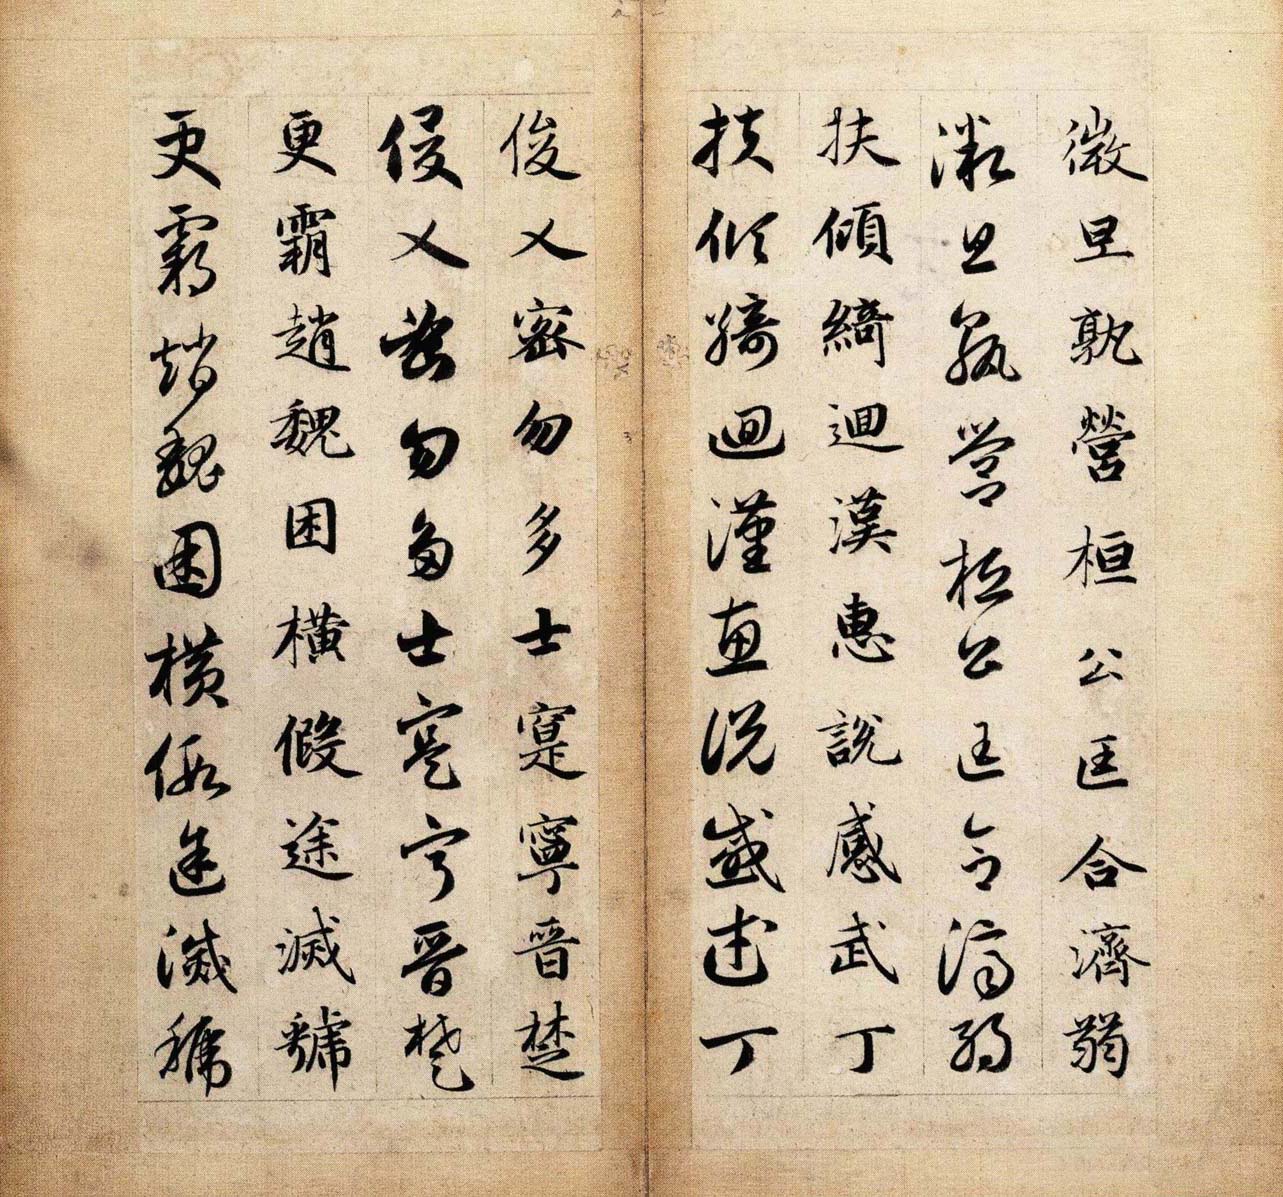 微旦孰營桓公匡合濟弱
微旦孰營桓公匡合濟弱
扶傾綺迴漢惠說感武丁
扶傾綺迴漢惠說感武丁
俊乂密勿多士寔寧晉楚
俊乂密勿多士寔寧晉楚
更霸趙魏困橫假途滅虢
更霸趙魏困橫假途滅虢